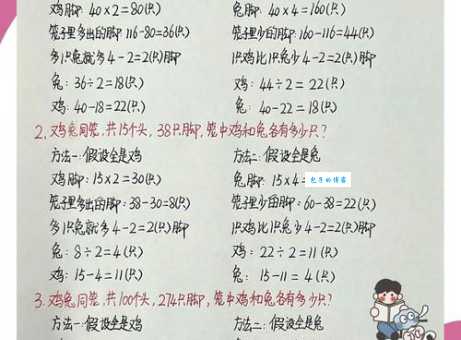 鸡脚: 40×2=80(只)
兔脚: 40×4=160(只)
笼子里多出的脚: 116-80=36(只)
笼子里少的脚: 160-116=44(只)
多1只兔就多4-2=2(只)脚
1只鸡比1只兔少4-2=2(只)脚
兔: 36÷2=18(只)
鸡: 44÷2=22(只)
鸡: 40-18=22(只)
兔: 40-22=18(只)
2. 鸡兔同笼, 共15个头, 38只脚, 笼中鸡和兔各有多少只?
方法一: 假设全是鸡
方法二: 假设全是兔
鸡脚: 15×2=30(只)
兔脚: 15×4=
包子的博客
笼子里多出的脚: 38-30=8(只)
笼子里少的脚: 60-38=22(只)
多1只兔就多4-2=2(只)脚
1只鸡比1只兔少4-2=2(只)脚
兔: 8÷2=4(只)
鸡: 22÷2=11(只)
鸡: 15-4=11(只)
兔: 15-11=4(只)
3. 鸡兔同笼, 共100个头, 274只脚, 笼中鸡和兔各有多少只?
方法一: 假设全是鸡
方法二: 假设全是兔